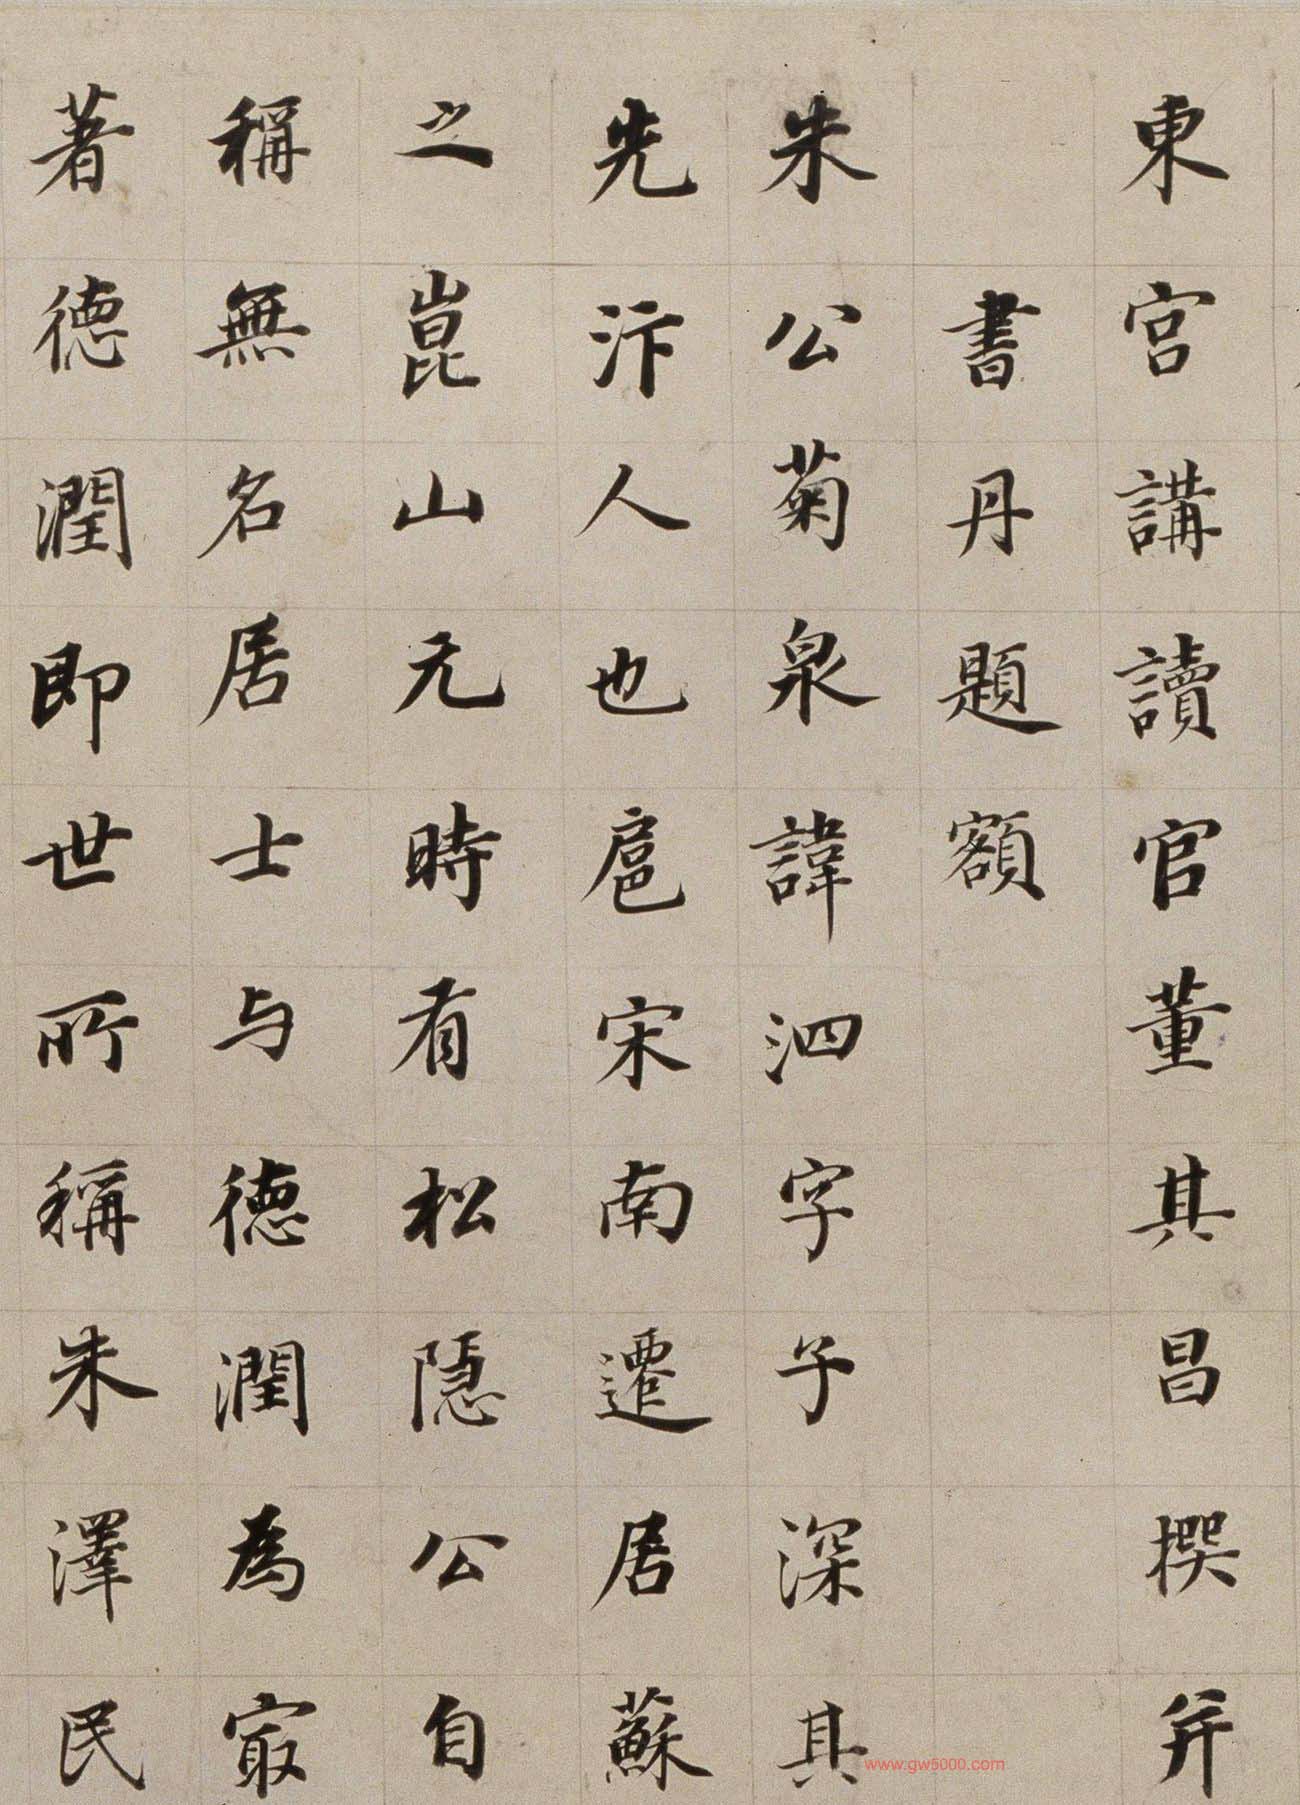 東宮講讀官董其昌撰并
書丹題額
朱公菊泉諱泗字子深其
先汴人也扈宋南遷居蘇
之崑山元時有松隱公自
稱無名居士与德潤為㝡
著德潤即世所稱朱澤民
www.gw5000.com